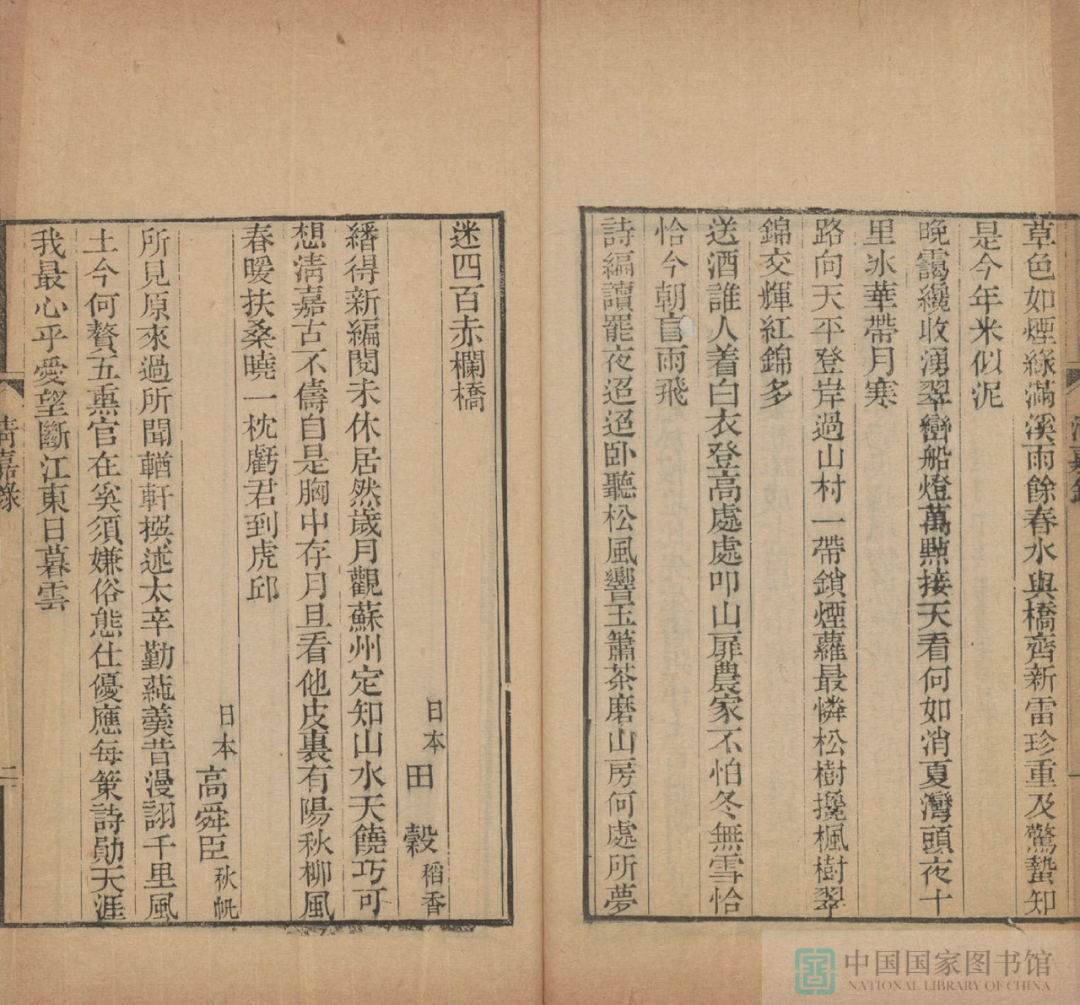 草色如煙綠滿溪雨餘春水與橋齊新雷珍重及驚蟄知
是今年米似泥
晚靄纔收湧翠巒船燈萬點接天看何如消夏灣頭夜十
里氷華帶月寒
路向天平登岸過山村一帶鎖煙蘿最憐松樹攙楓樹翠
錦交輝紅錦多
送酒誰人着白衣登高處處叩山扉農家不怕冬無雪恰
恰今朝盲雨飛
詩編讀罷夜迢迢臥聽松風響玉簫茶磨山房何處所夢
迷四百赤欄橋
日本 田 穀 稻香
繙得新編閱未休居然歲月觀蘇州定知山水天饒巧可
想清嘉古不儔自是胸中存月旦看他皮裏有陽秋柳風
春暖扶桑曉一枕虧君到虎邱
日本 高舜臣 秋帆
所見原來過所聞輶軒撰述太辛勤蒓羹昔漫詡千里風
土今何贅五熏官在奚須嫌俗態仕優應每策詩勛天涯
我最心乎愛望斷江東日暮雲
清嘉錄
二
中国国家图书馆
NATIONAL LIBRARY OF CHINA